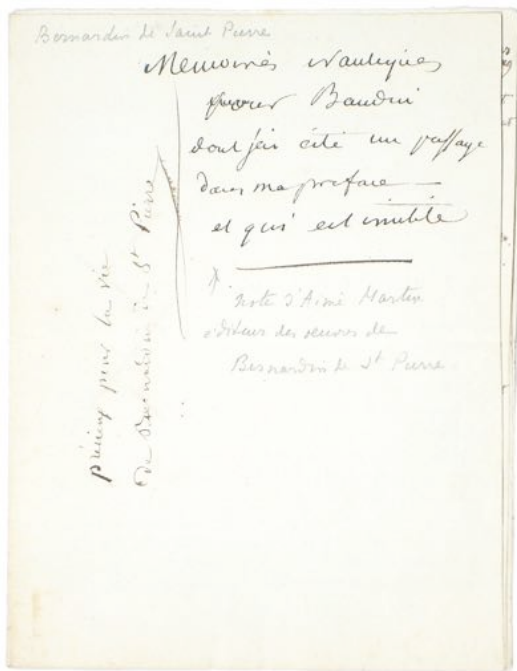 Bernardin de Saint Pierre
Memoires Nautiques
pour Baudin
dont j'ai cité un passage
dans ma preface
et qui est inutile
note d'Aimé Martin
éditeur des œuvres de
Bernardin de St Pierre
précieux pour la vie
de Bernardin de St Pierre